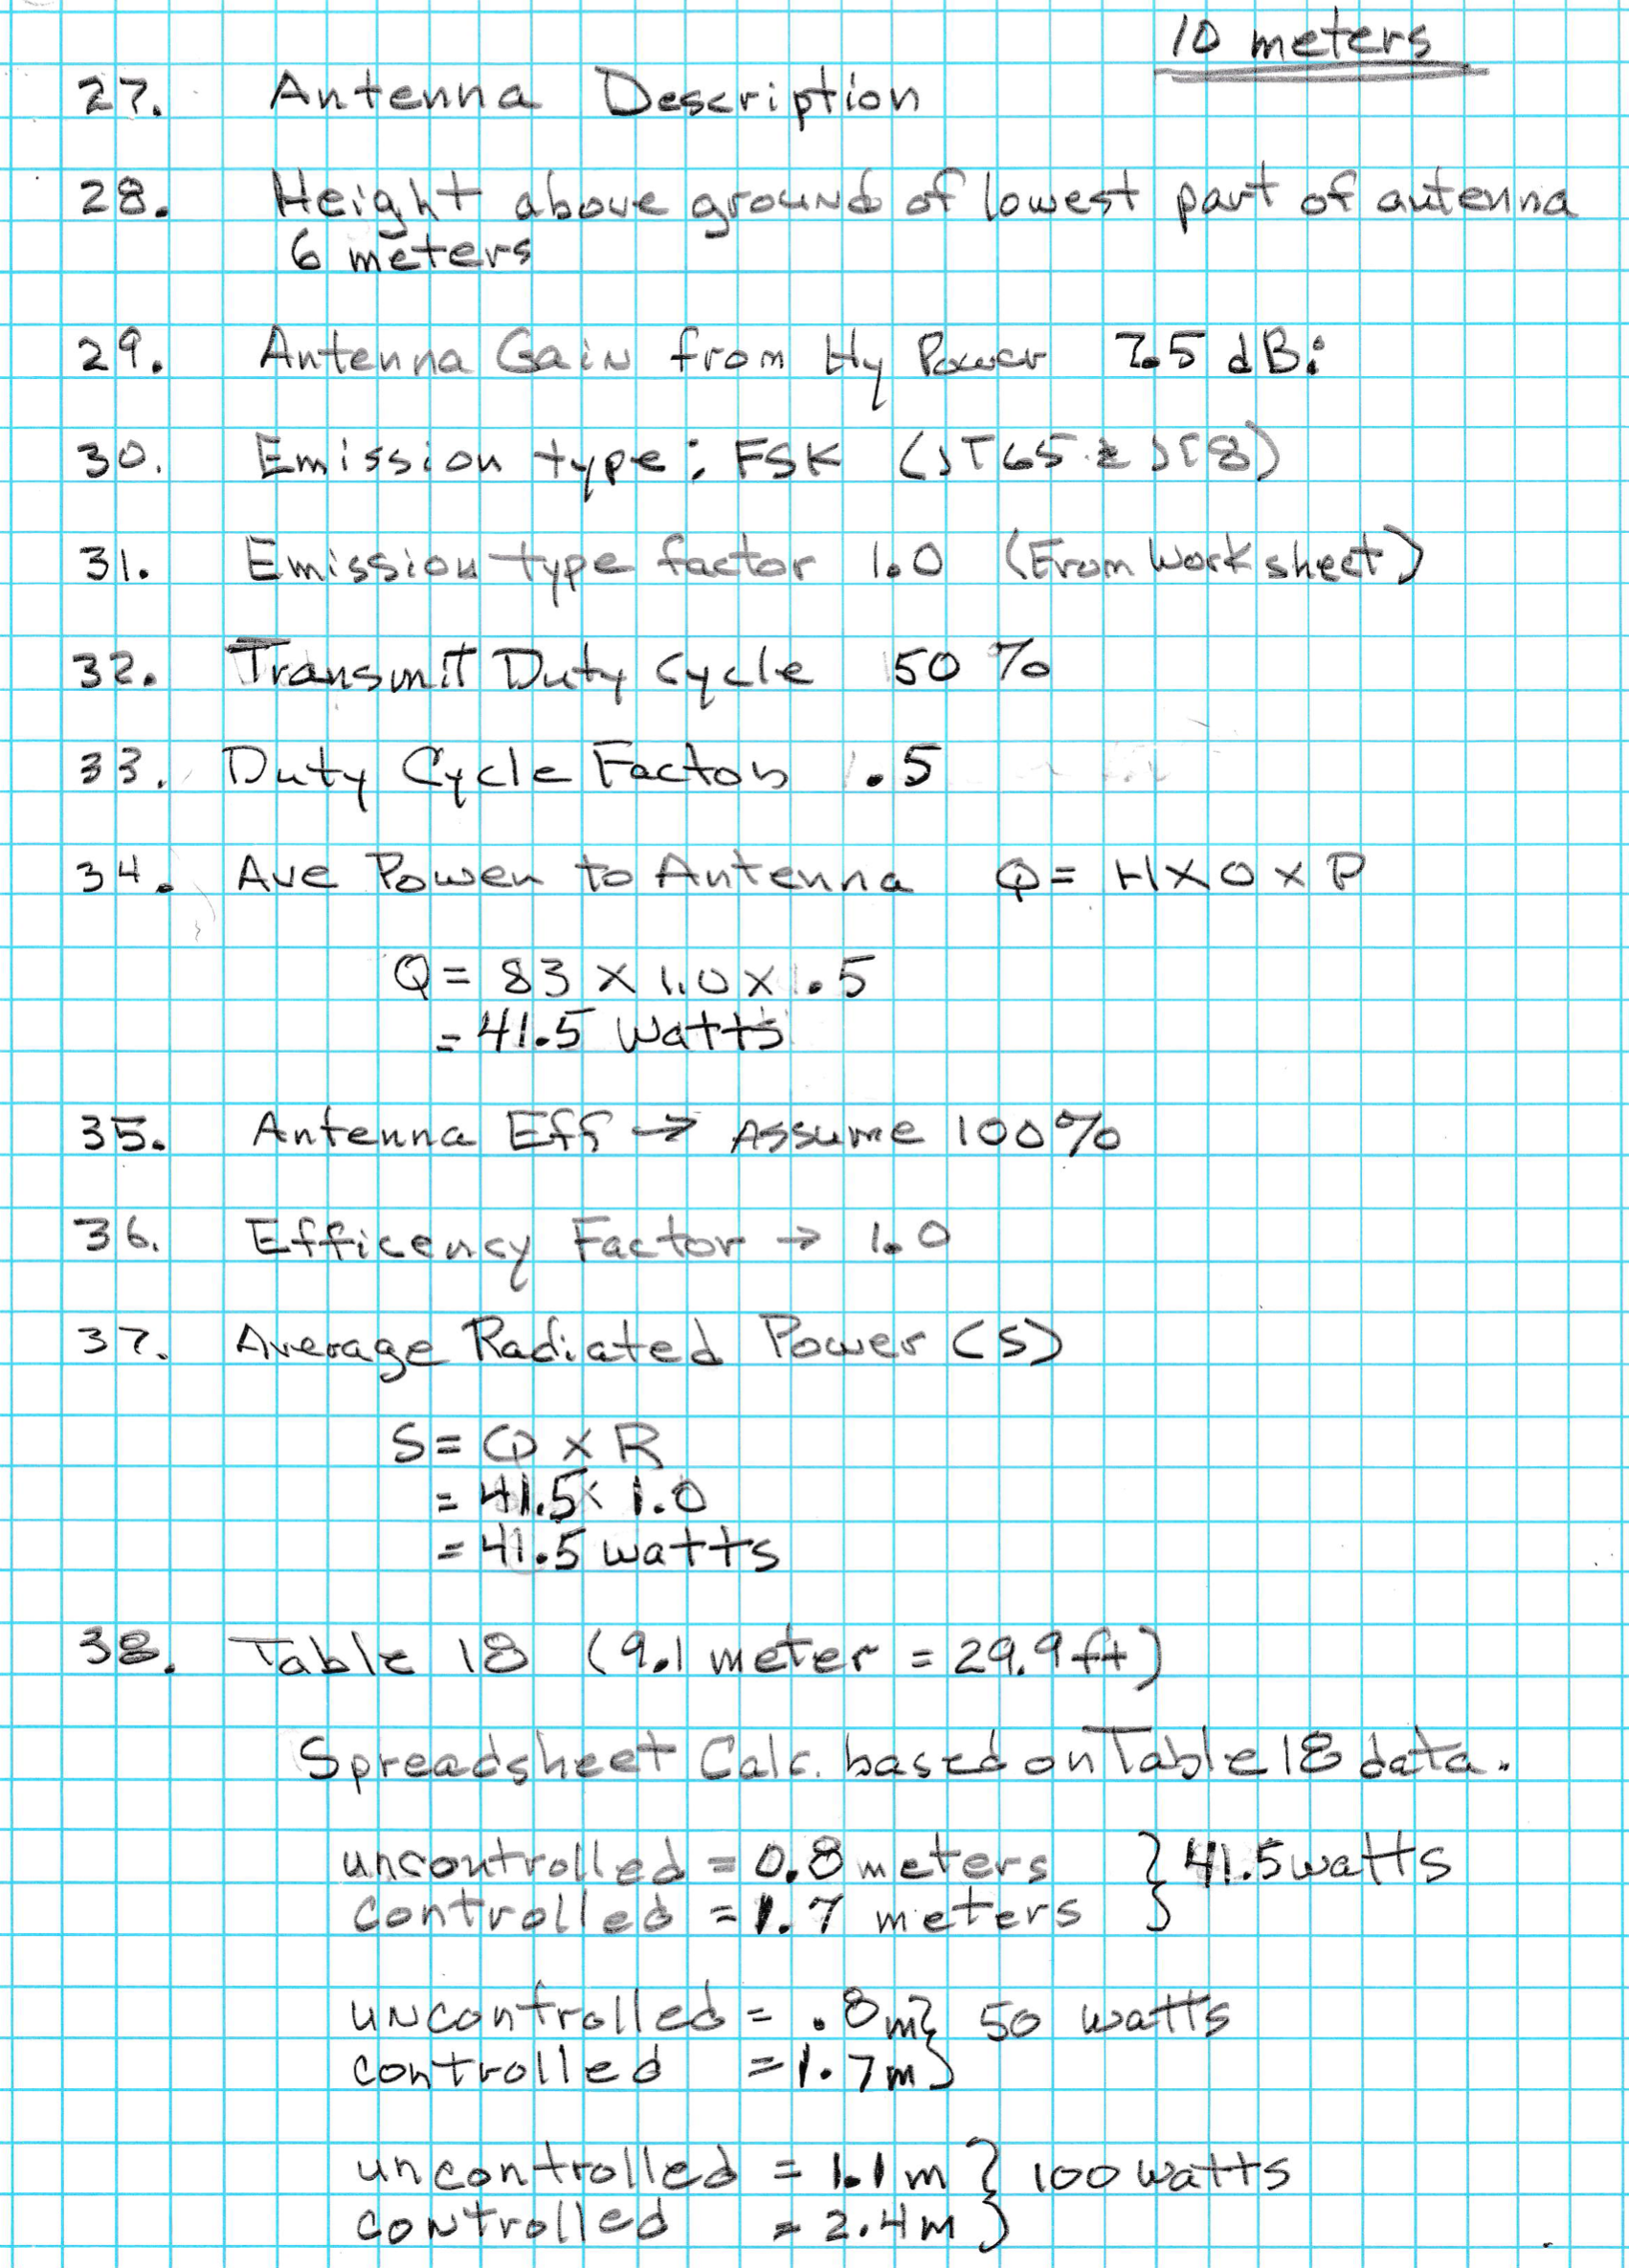 10 meters
27. Antenna Description
28. Height above ground of lowest part of antenna
6 meters
29. Antenna Gain from Hy Power 7.5 dBi
30. Emission type: FSK (JT65 & JT8)
31. Emission type factor 1.0 (From Work sheet)
32. Transmit Duty Cycle 50 %
33. Duty Cycle Factor .5
34. Ave Power to Antenna Q = H X O x P
Q = 83 x 1.0 x .5
= 41.5 Watts
35. Antenna Eff → Assume 100%
36. Efficency Factor → 1.0
37. Average Radiated Power (S)
S = Q x R
= 41.5 x 1.0
= 41.5 watts
38. Table 18 (9.1 meter = 29.9 ft)
Spreadsheet Calc. based on Table 18 data.
uncontrolled = 0.8 meters } 41.5 watts
controlled = 1.7 meters
uncontrolled = .8m } 50 watts
controlled = 1.7m
uncontrolled = 1.1m } 100 watts
controlled = 2.4m